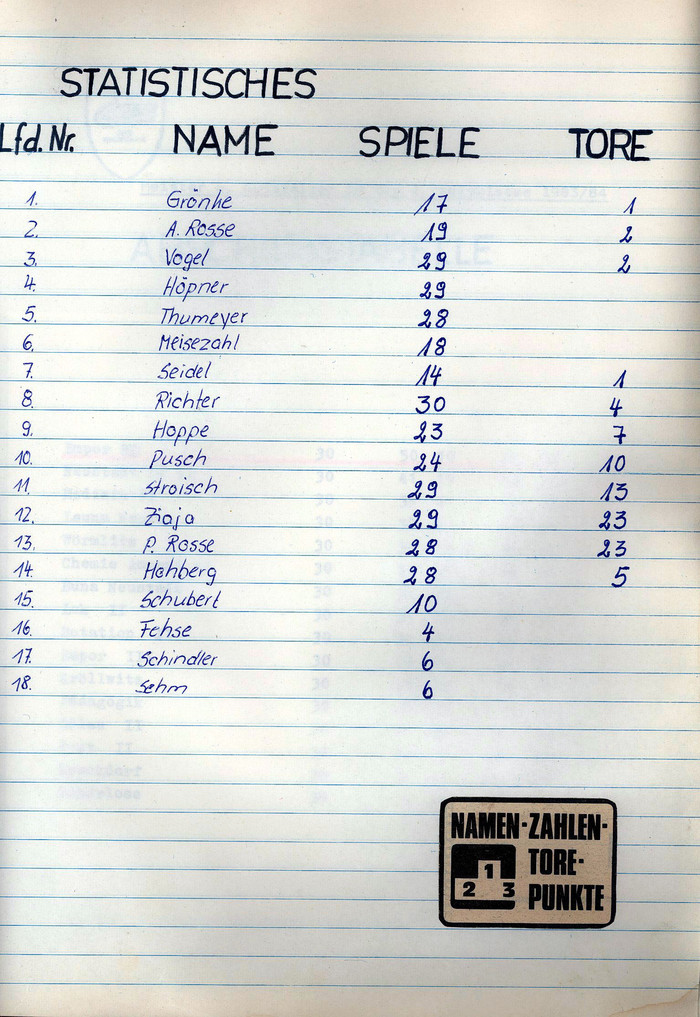 STATISTISCHES
Lfd. Nr. NAME SPIELE TORE
1. Grönke 17 1
2. A. Rosse 19 2
3. Vogel 29 2
4. Höpner 29
5. Thumeyer 28
6. Meisezahl 18
7. Seidel 14 1
8. Richter 30 4
9. Hoppe 23 7
10. Pusch 24 10
11. Stroisch 29 13
12. Ziaja 29 23
13. P. Rosse 28 23
14. Hohberg 28 5
15. Schubert 10
16. Fehse 4
17. Schindler 6
18. Sehm 6
NAMEN-ZAHLEN-
TORE-
PUNKTE
1
2 3